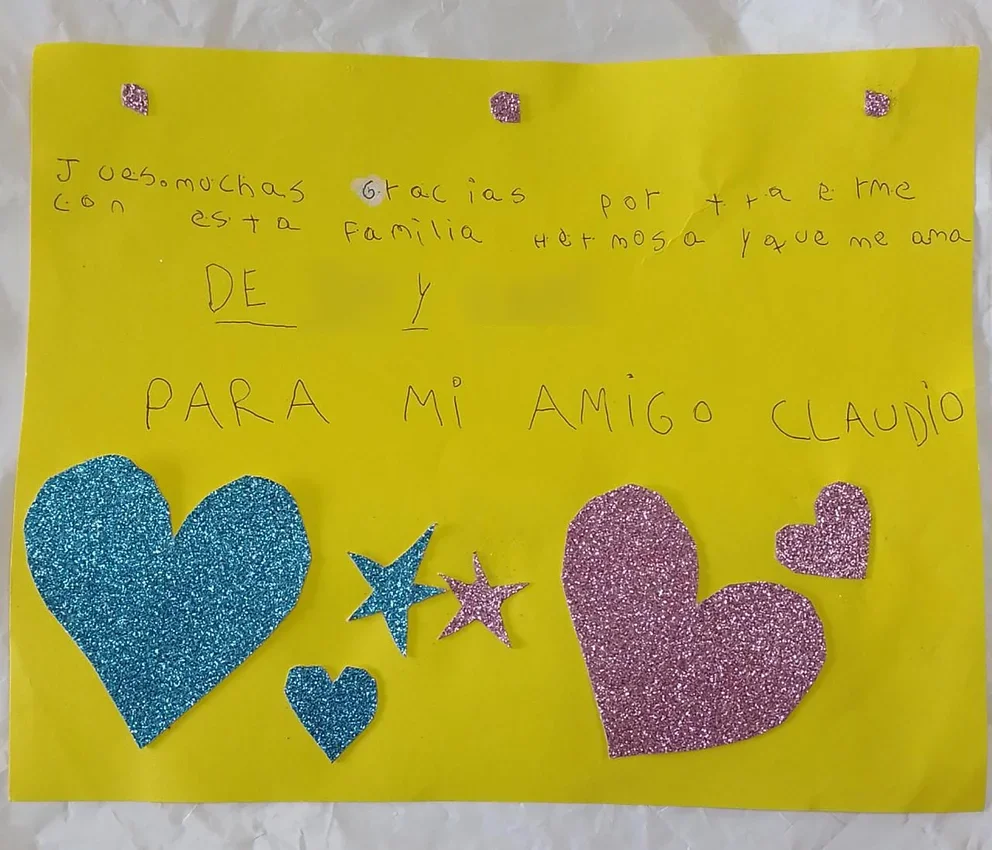 Jues.muchas Gracias por traerme
con esta Familia Hermosa y que me ama
DE Y
PARA Mi AMiGo CLAUDiO